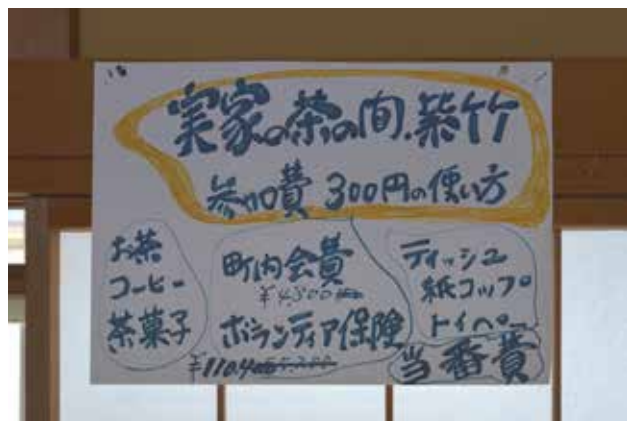 実家の茶の間.紫竹
参加費 300円の使い方
お茶
コーヒー
茶菓子
町内会費
¥4800
ボランティア保険
¥110.400
ティッシュ
紙コップ
トイペー
当番費